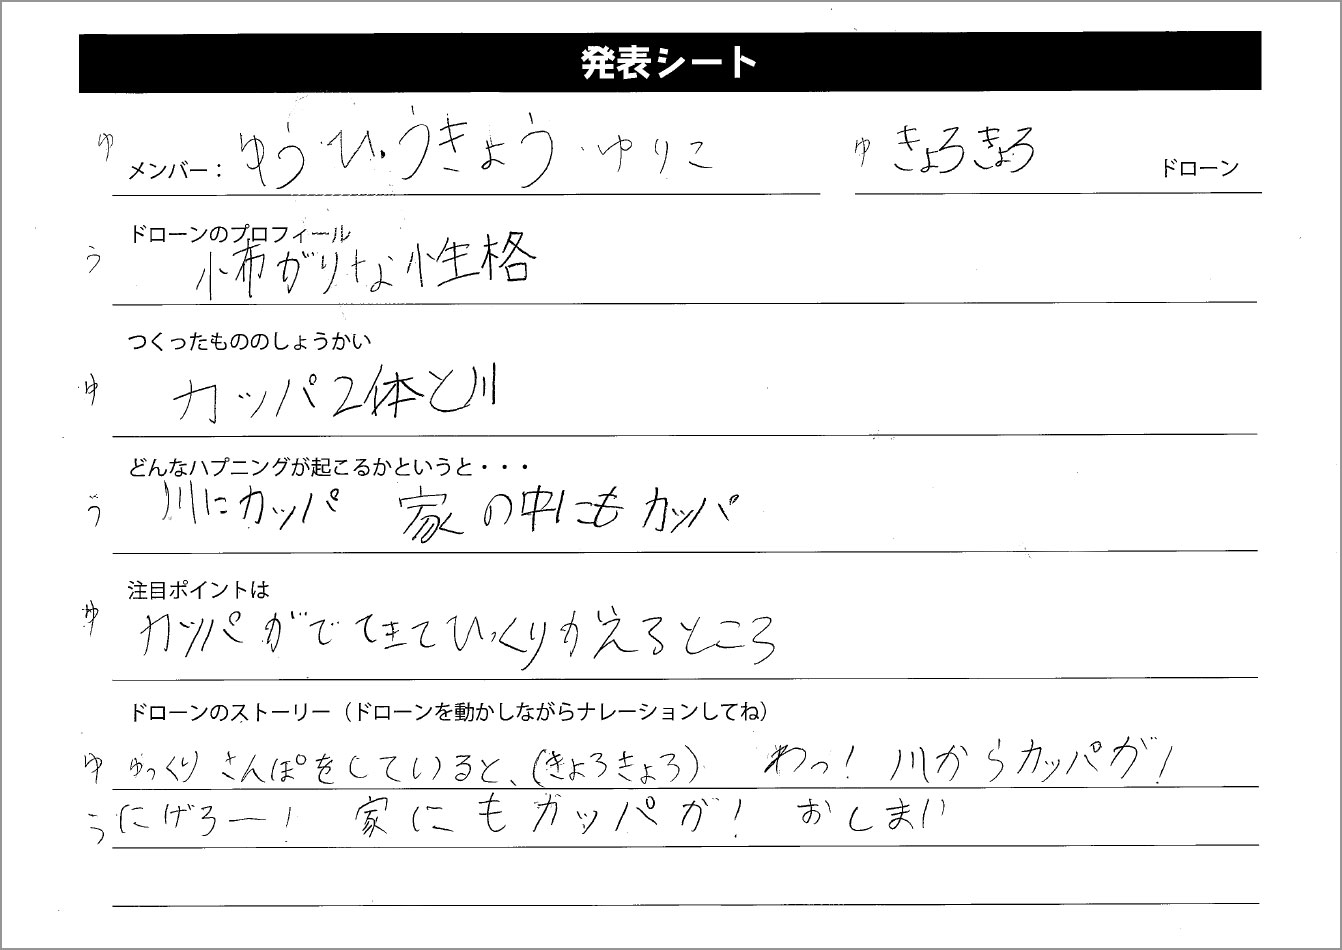 発表シート
ゆ メンバー： ゆう・ひ・うきょう・ゆりこ ゆ きょろきょろ ドローン
ドローンのプロフィール
う 怖がりな性格
つくったもののしょうかい
ゆ カッパ2体と川
どんなハプニングが起こるかというと・・・
う 川にカッパ 家の中にもカッパ
注目ポイントは
ゆ カッパがでてきてひっくりかえるところ
ドローンのストーリー（ドローンを動かしながらナレーションしてね）
ゆ ゆっくりさんぽをしていると、（きょろきょろ） わっ！ 川からカッパが！
う にげろー！ 家にもカッパが！ おしまい